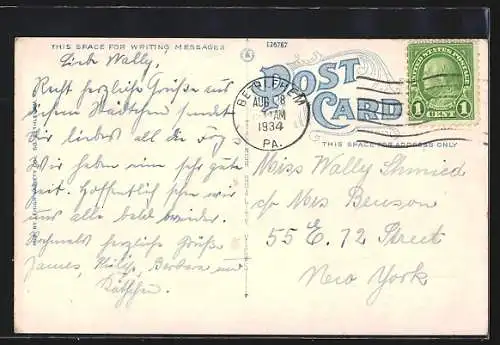 THIS SPACE FOR WRITING MESSAGES
Liebe Wally,
Recht herzliche Grüsse aus
Städtchen sendet
Dir liebes all die
Wir haben eine sehr gute
Zeit. Hoffentlich sehn wir
uns alle bald wieder.
Nochmals herzliche Grüße
James, Philip, Barbara und
Käthchen.
126767
POST
CARD
BETHLEHEM
AUG 28
AM
1934
PA.
UNITED STATES POSTAGE
1 CENT 1
THIS SPACE FOR ADDRESS ONLY
Miss Wally Schmied
c/o Mrs Benson
55 E. 72 Street
New York